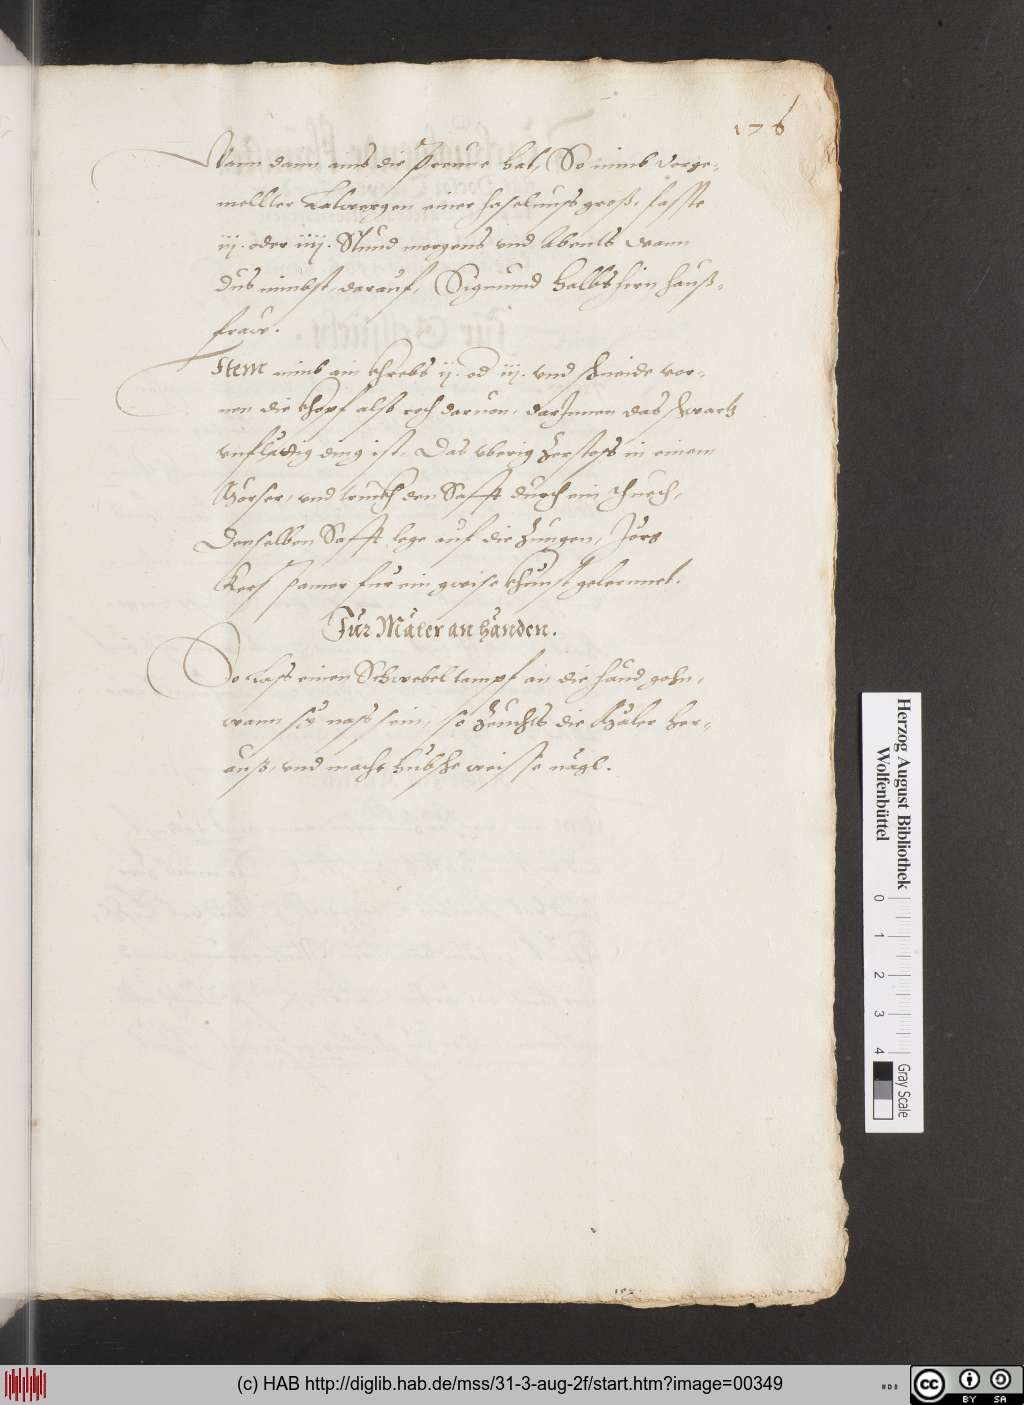 176
Wann dann ains die Preune hat, So nimb vorge-
melter Latwergen einer haselnuss groß, faste
iij. oder iiij. Stund morgens und Abents wann
dus nimbst, darauf, Sigmund Halbshirn hauß-
fraw.
Item nimb ain khrebs ij. od iij. und schneide vor-
nen die khöpf alß roch daruon, darJnnen das schwartz
unfluttig ding ist, Das vberig zerstoss in einem
Mörser, und truckh den Safft durch ein Thuech,
Denselben Safft lege auf die Zungen, Jörg
für ein gwise khunst gelernnet.
Für Mäler an Händen.
So Lass einen Schwebel tampf an die händ gehn,
wann sy nass sein, so zeuchts die Mäler her-
auß, und macht hubsche weisse nägl.
Herzog August Bibliothek
Wolfenbüttel
0 1 2 3 4
Gray Scale
(c) HAB http://diglib.hab.de/mss/31-3-aug-2f/start.htm?image=00349
cc BY SA